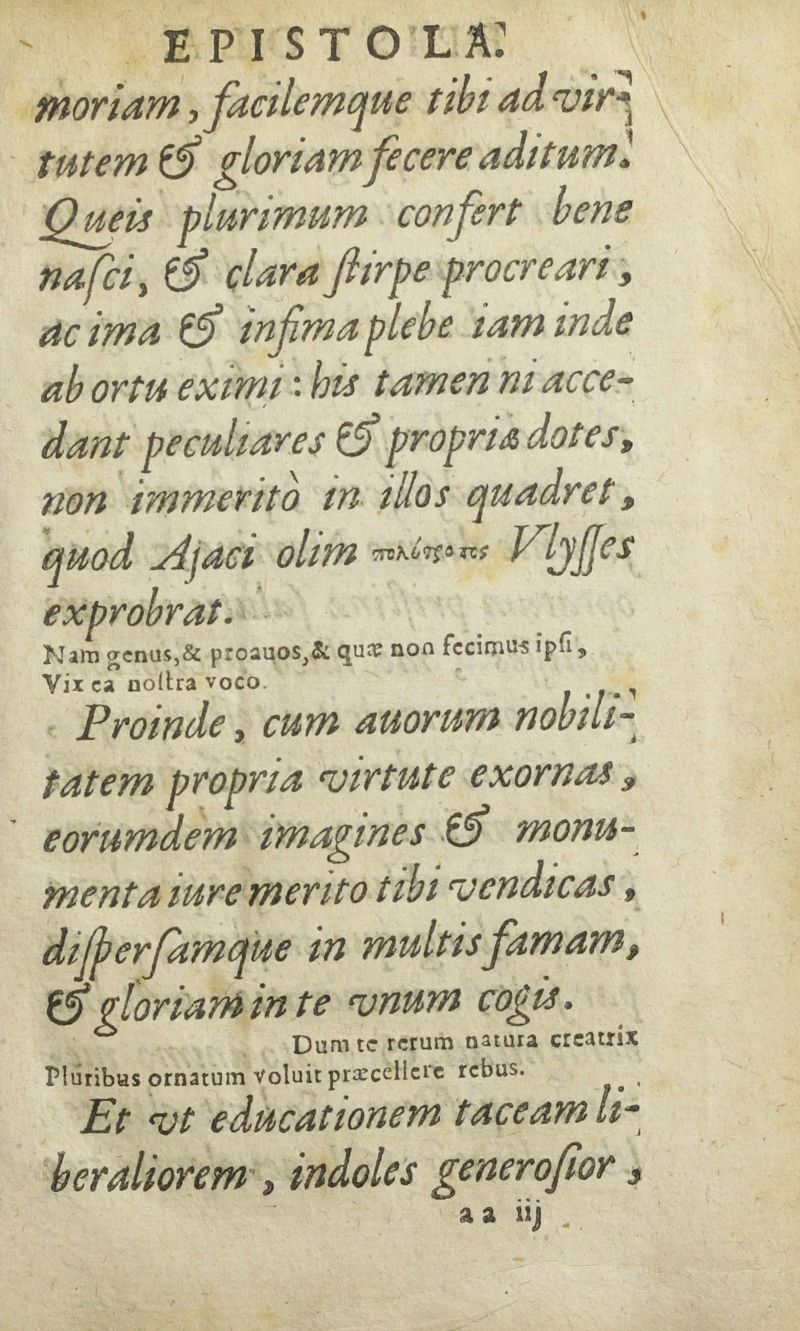 EPISTOLA.
moriam, facilemque tibi ad vir-
tutem & gloriam fecere aditum.
Queis plurimum confert bene
naſci, & clara ſtirpe procreari,
ac ima & infima plebe iam inde
ab ortu eximi : his tamen ni acce-
dant peculiares & propriæ dotes,
non immeritò in illos quadret,
quod Ajaci olim Vlyſſes
exprobrat.
Nam genus, & proauos, & quæ non fecimus ipſi,
Vix ea noſtra voco.
Proinde, cum auorum nobili-
tatem propria virtute exornas,
eorumdem imagines & monu-
menta iure merito tibi vendicas,
diſperſamque in multis famam,
& gloriam in te vnum cogis.
Dum te rerum natura creatrix
Pluribus ornatum voluit præcellere rebus.
Et vt educationem taceam li-
beraliorem, indoles generoſior,
aa iij